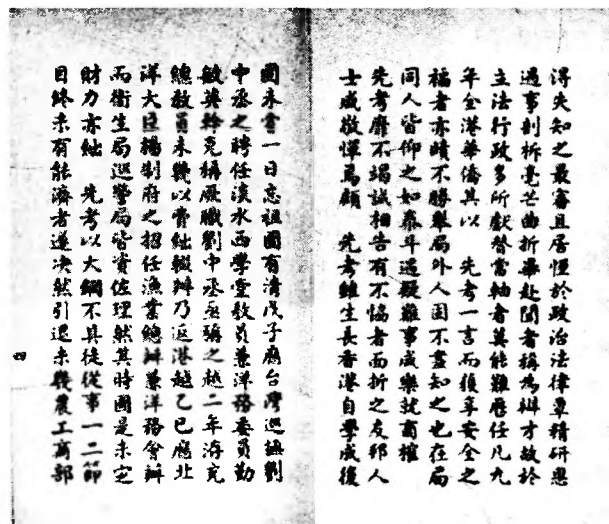 得失知之最審且居恆於政治法律覃精研思
遇事剖析毫芒曲折畢赴聞者稱為辯才故於
立法行政多所獻替當軸者莫能難應任凡九
年全港華僑其以　先考一言而獲享安全之
福者亦晴不勝舉局外人固不盡知之也在局
同人皆仰之如泰斗遇疑難事咸樂就商榷
先考靡不竭誠相告有不協者面折之友邦人
士咸敬憚焉顧　先考雖生長香港自學成後
國未嘗一日忘祖國有清戊子應台灣巡撫劉
中丞之聘任淡水西學堂教員兼洋務委員勤
敏英幹克稱厥職劉中丞亟稱之越二年游充
總教員未幾以費絀輟辦乃返港越乙巳應北
洋大臣楊制府之招任漁業總辦兼洋務會辦
而衛生局巡警局皆資佐理然其時國是未定
財力亦絀　先考以大綱不具徒從事一二節
目終未有能濟者遂決然引退未幾農工商部
四